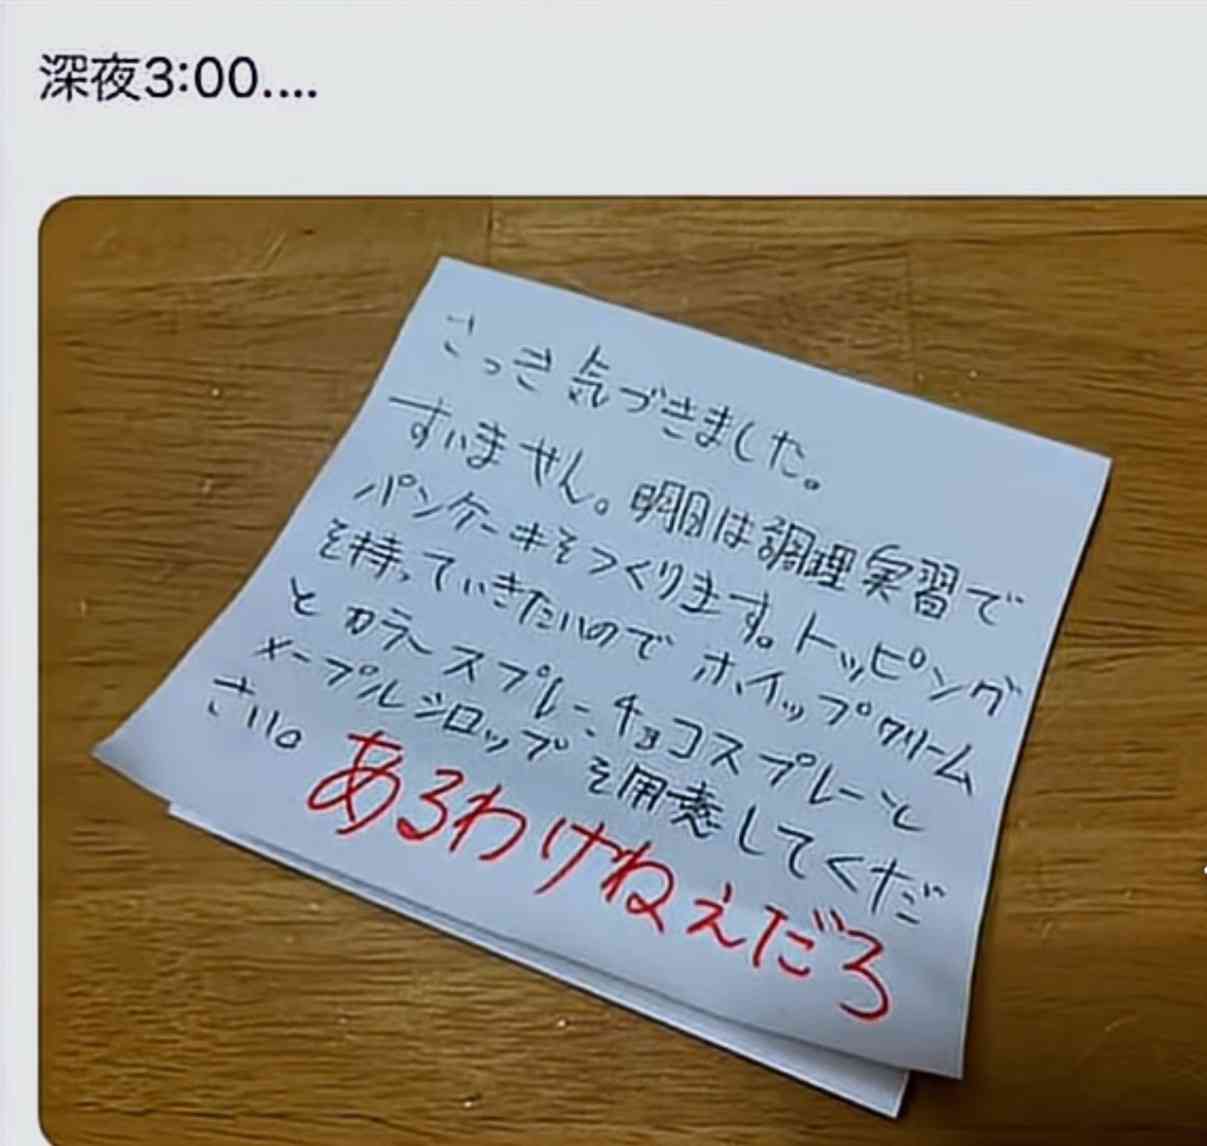 深夜3:00....
さっき気づきました。
すいません。明日は調理実習で
パンケーキをつくります。トッピング
を持っていきたいので ホイップクリーム
と カラースプレーチョコスプレーと
メープルシロップを用意してくだ
さい。
あるわけねえだろ